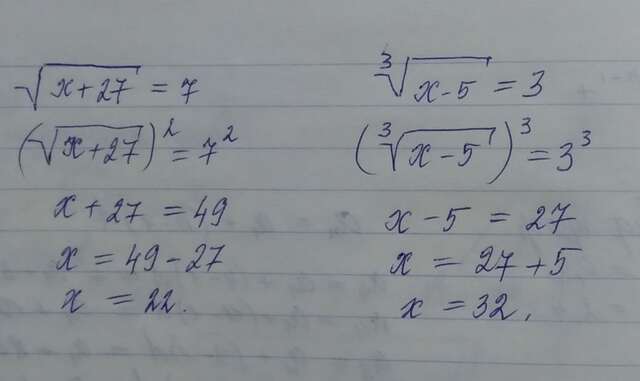 √(x+27) = 7
(√(x+27))² = 7²
x + 27 = 49
x = 49 - 27
x = 22.
∛(x-5) = 3
(∛(x-5))³ = 3³
x - 5 = 27
x = 27 + 5
x = 32,